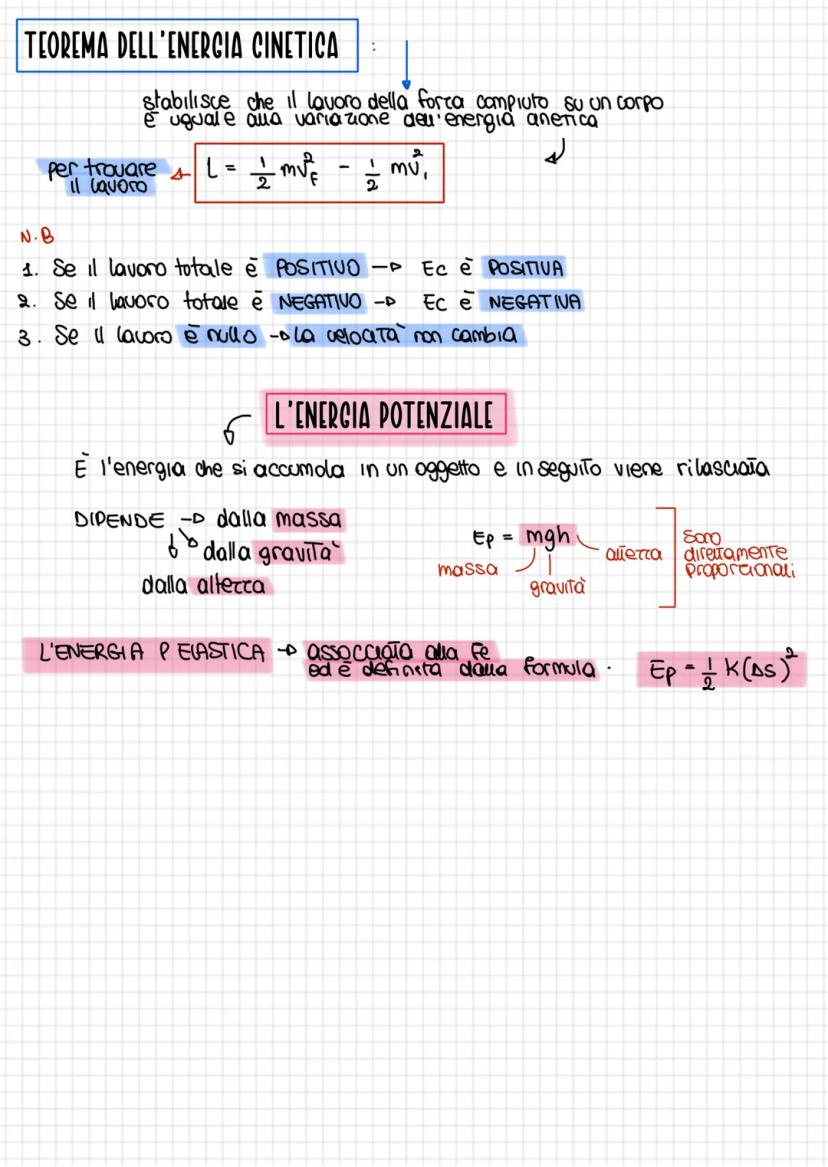 TEOREMA DELL'ENERGIA CINETICA :
stabilisce che il lavoro della forza compiuto su un corpo
è uguale alla variazione dell'energia cinetica
per trovare
il lavoro
L = 1/2 mv²F - 1/2 mv²i
N.B
1. Se il lavoro totale è POSITIVO → Ec è POSITIVA
2. Se il lavoro totale è NEGATIVO → Ec è NEGATIVA
3. Se il lavoro è nullo → la velocità non cambia
L'ENERGIA POTENZIALE
È l'energia che si accumola in un oggetto e in seguito viene rilasciata
DIPENDE → dalla massa
dalla gravità
dalla altezza
Ep = mgh
massa
gravità
altezza
sono
direttamente
proporzionali
L'ENERGIA P ELASTICA → assocciata alla Fe
ed è definita dalla formula .
Ep = 1/2 K(Δs)²